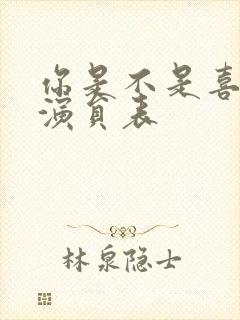 你是不是喜
演员表
林泉隐士